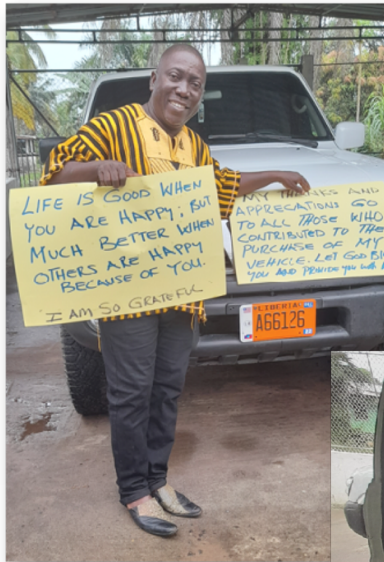 LIFE IS GOOD WHEN
YOU ARE HAPPY; BUT
MUCH BETTER WHEN
OTHERS ARE HAPPY
BECAUSE OF YOU.
I AM SO GRATEFUL
MY THANKS AND
APPRECIATIONS GO
TO ALL THOSE WHO
CONTRIBUTED TO THE
PURCHASE OF MY
VEHICLE. LET GOD
YOU AND PROVIDE YOU
LIBERIA
A66126